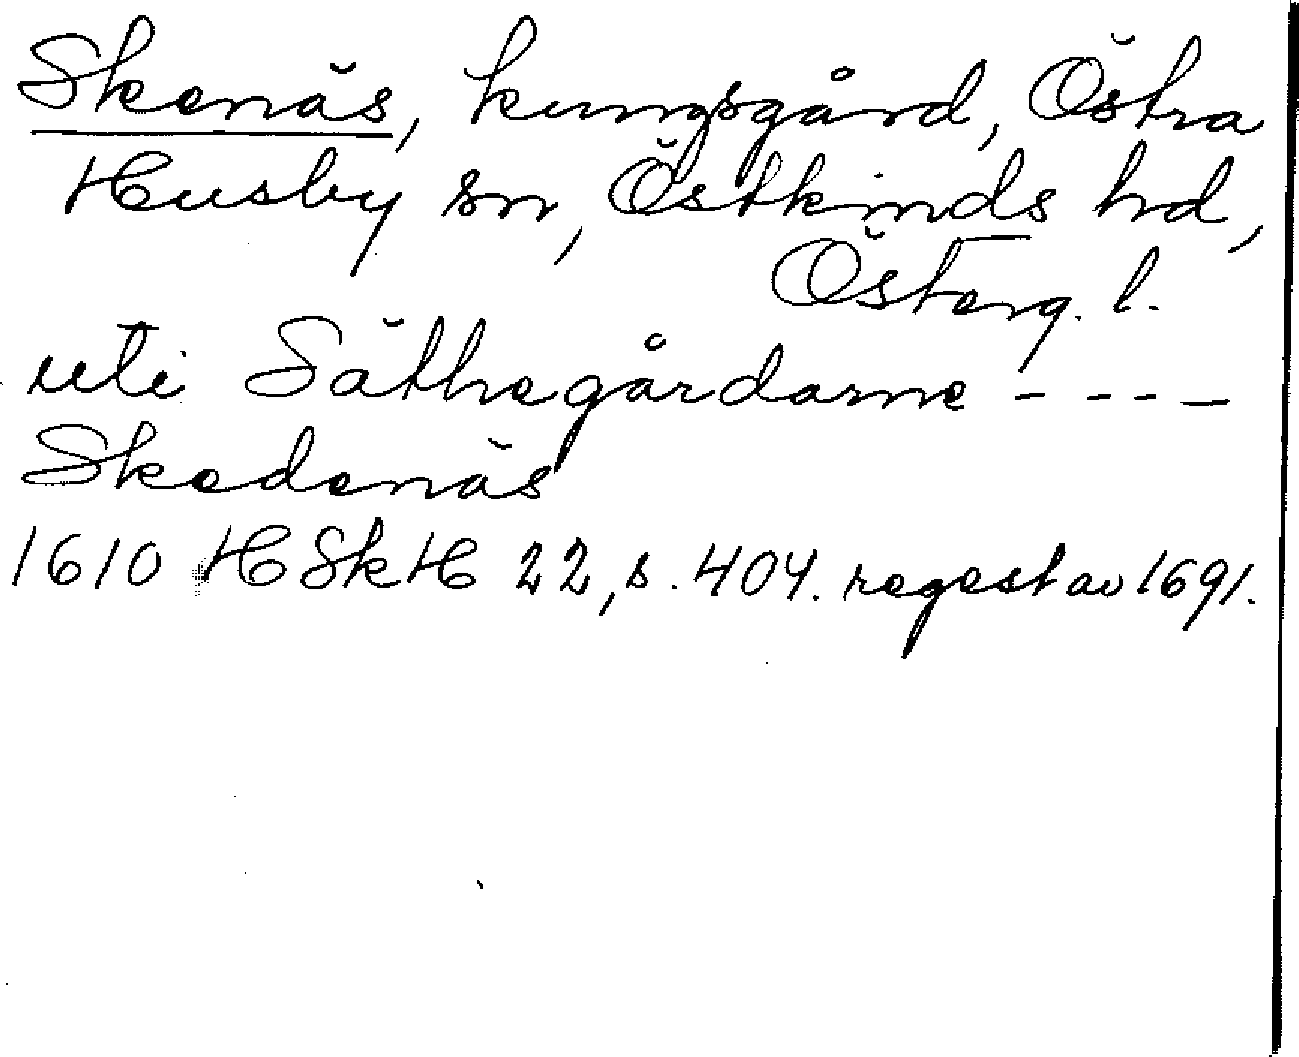 Skenäs, kungsgård, Östra
Husby sn, Östkinds hd,
Österg. l.
uti Säthegårdarne - - - -
Skedenäs
1610 HSkH 22, s. 404. regest av 1691.